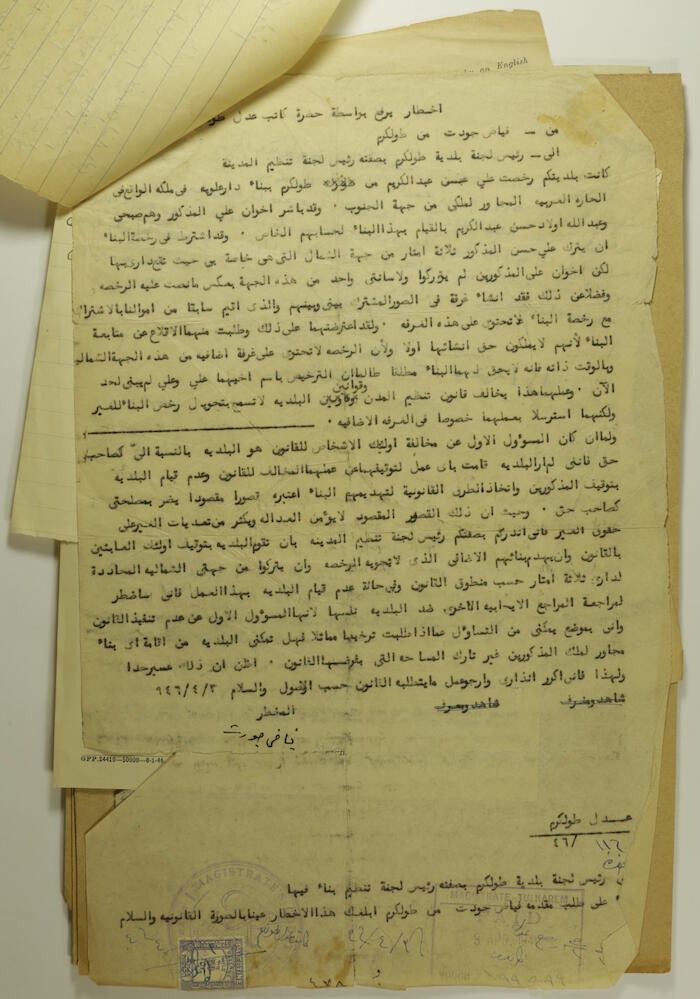 on English
اخطار يرفع بواسطة حضرة كاتب عدل
من – فياض جودت من طولكرم
الى – رئيس لجنة بلدية طولكرم بصفته رئيس لجنة تنظيم المدينة
كانت بلديتكم رخصت علي حسن عبدالكريم من طولكرم ببناء دارعلويه في ملكه الواقع في
الحاره الغربيه المجاور لملكي من جهة الجنوب . وقد باشر اخوان علي المذكور وهم صبحي
وعبدالله اولاد حسن عبدالكريم بالقيام بهذا البناء لحسابهم الخاص . وقد اشترط في رخصة البناء
ان يترك علي حسن المذكور ثلاثة امتار من جهة الشمال التي هي خاصة بي حيث تقع داري بها
لكن اخوان علي المذكورين لم يتركوا ولا سانتي واحد من هذه الجهة بعكس ما نصت عليه الرخصه
وفضلا عن ذلك فقد انشاء غرفة في الصور المشترك بيني وبينهم والذي اقيم سابقا من اموالنا بالاشتراك
مع رخصة البناء لا تحتوي على هذه الغرفه . ولقد اعترضتهما على ذلك وطلبت منهما الاقلاع عن متابعة
البناء لأنهم لا يملكون حق انشائها اولا ولأن الرخصه لا تحتوي على غرفة اضافيه من هذه الجهة الشماليه
وبالوقت ذاته فانه لا يحق لهما البناء مطلقا طالما ان الترخيص باسم اخيهما علي وعلي لم يبني لحد
الآن . وعملهما هذا يخالف قانون تنظيم المدن وقوانين البلديه لا تسمح بتحويل رخص البناء للغير
ولكنهما استرسلا بعملهما خصوصا في الغرفه الاضافيه .
ولما ان كان المسؤول الاول عن مخالفة اولئك الاشخاص للقانون هو البلديه بالنسبة الي كصاحب
حق فانني لم ار البلديه قامت باي عمل لتوقيفهما عن عملهما المخالف للقانون وعدم قيام البلديه
بتوقيف المذكورين واتخاذ الطرق القانونية لتهديمهم البناء اعتبره قصورا مقصودا يضر بمصلحتي
كصاحب حق . وحيث ان ذلك القصور المقصود لا يؤمن العداله ويكثر من تعديات الغير على
حقوق الغير فاني انذركم بصفتكم رئيس لجنة تنظيم المدينه بان تقوم البلديه بتوقيف اولئك العابثين
بالقانون وان يهدم بنائهم الاضافي الذي لا تحويه الرخصه وان يتركوا من جهتي الشماليه المحاددة
لداري ثلاثة امتار حسب منطوق القانون وفي حالة عدم قيام البلديه بهذا العمل فاني ساضطر
لمراجعة المراجع الايجابيه الاخرى ضد البلديه نفسها لانها المسؤول الاول عن عدم تنفيذ القانون
واني بموضع يمكنني من التساؤل عما اذا طلبت ترخيصا مماثلا فهل تمكنني البلديه من اقامة اي بناء
مجاور لملك المذكورين غير تارك المساحه التي يفرضها القانون . اظن ان ذلك عسير جدا
ولهذا فاني اكرر انذاري وارجو عمل ما يتطلبه القانون حسب الاصول والسلام ٩٤٦/٤/٣
شاهد ومعرف شاهد ومعرف المخطر
فياض جودت
G.P.P. 24410—50000—6-1-44
عدل طولكرم
٤٦/
رئيس لجنة بلدية طولكرم بصفته رئيس لجنة تنظيم بناء فيها
على طلب مقدمه فياض جودت من طولكرم ابلغك هذا الاخطار عينا بالصورة القانونيه والسلام
MAGISTRATE
MAGISTRATE TULKAREM